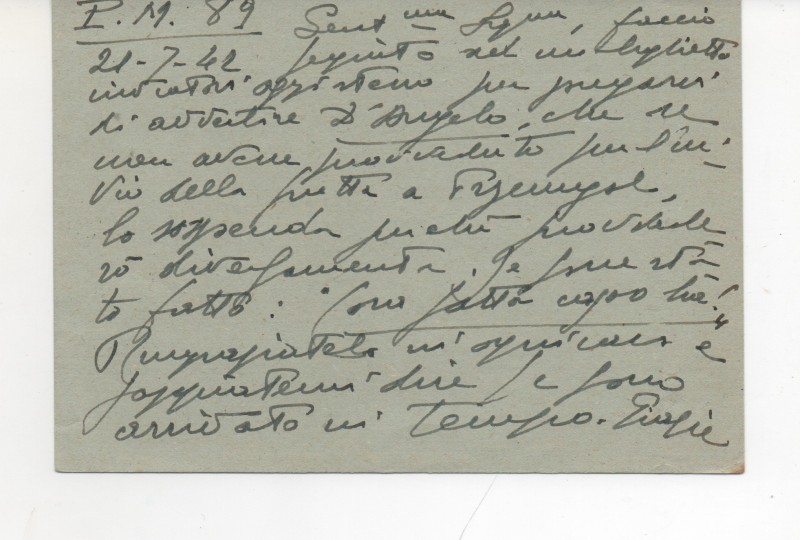 P.M. 89 Sent.ma Sig.na, faccio
21-7-42 seguito ad un biglietto
inviatovi per pregarvi
di avvertire D'Angelo, che se
non avesse provveduto per l'in-
vio della frutta a Przemysl,
lo sospenda perché provvede
rò diversamente. Se fosse sta
to fatto: "Cosa fatta capo ha!"
Ringraziatelo in ogni caso e
sappiatemi dire se sono
arrivato in tempo. Grazie